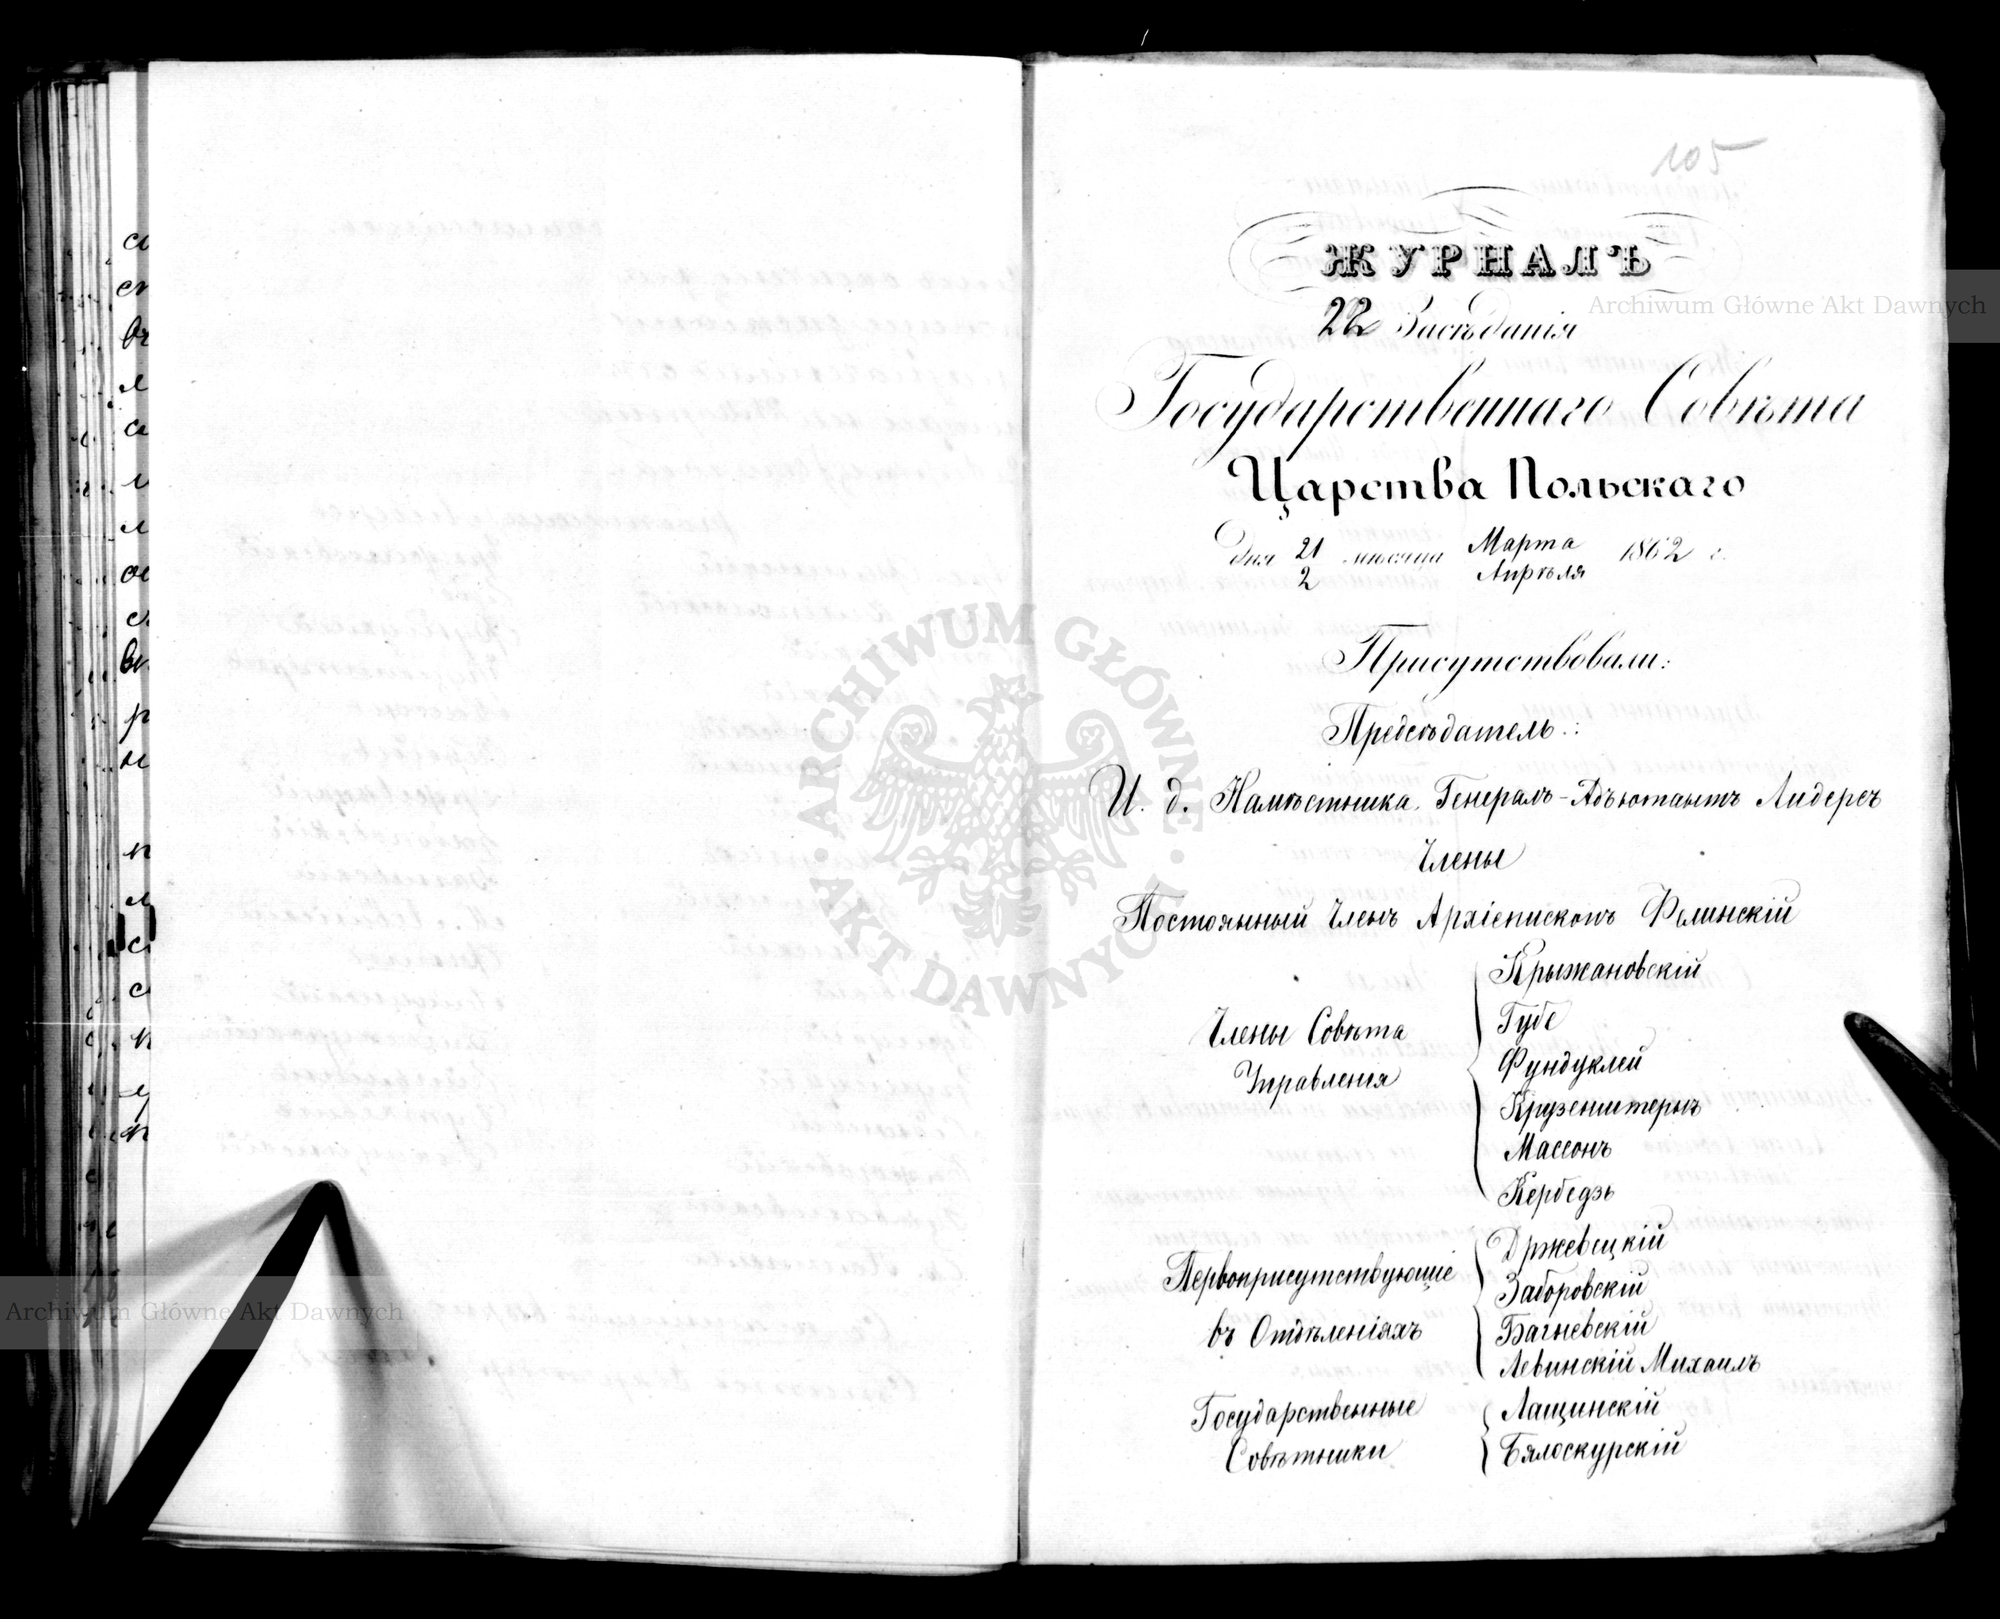 105
ЖУРНАЛЪ
22 Засѣданія
Государственнаго Совѣта
Царства Польскаго
Дня 21/2 мѣсяца Марта/Апрѣля 1862 г.
Присутствовали:
Предсѣдатель:
И. д. Намѣстника, Генералъ-Адъютантъ Лидерсъ
Члены
Постоянный Членъ Архіепископъ Фелинскій
Члены Совѣта Управленія
Крыжановскій
Губе
Фундуклей
Крузенштернъ
Массонъ
Кербедзъ
Первоприсутствующіе въ Отдѣленіяхъ
Држевецкій
Заборовскій
Багневскій
Левинскій Михаилъ
Государственные Совѣтники
Лащинскій
Бялоскурскій
Archiwum Główne Akt Dawnych
ARCHIWUM GŁÓWNE AKT DAWNYCH
Archiwum Główne Akt Dawnych